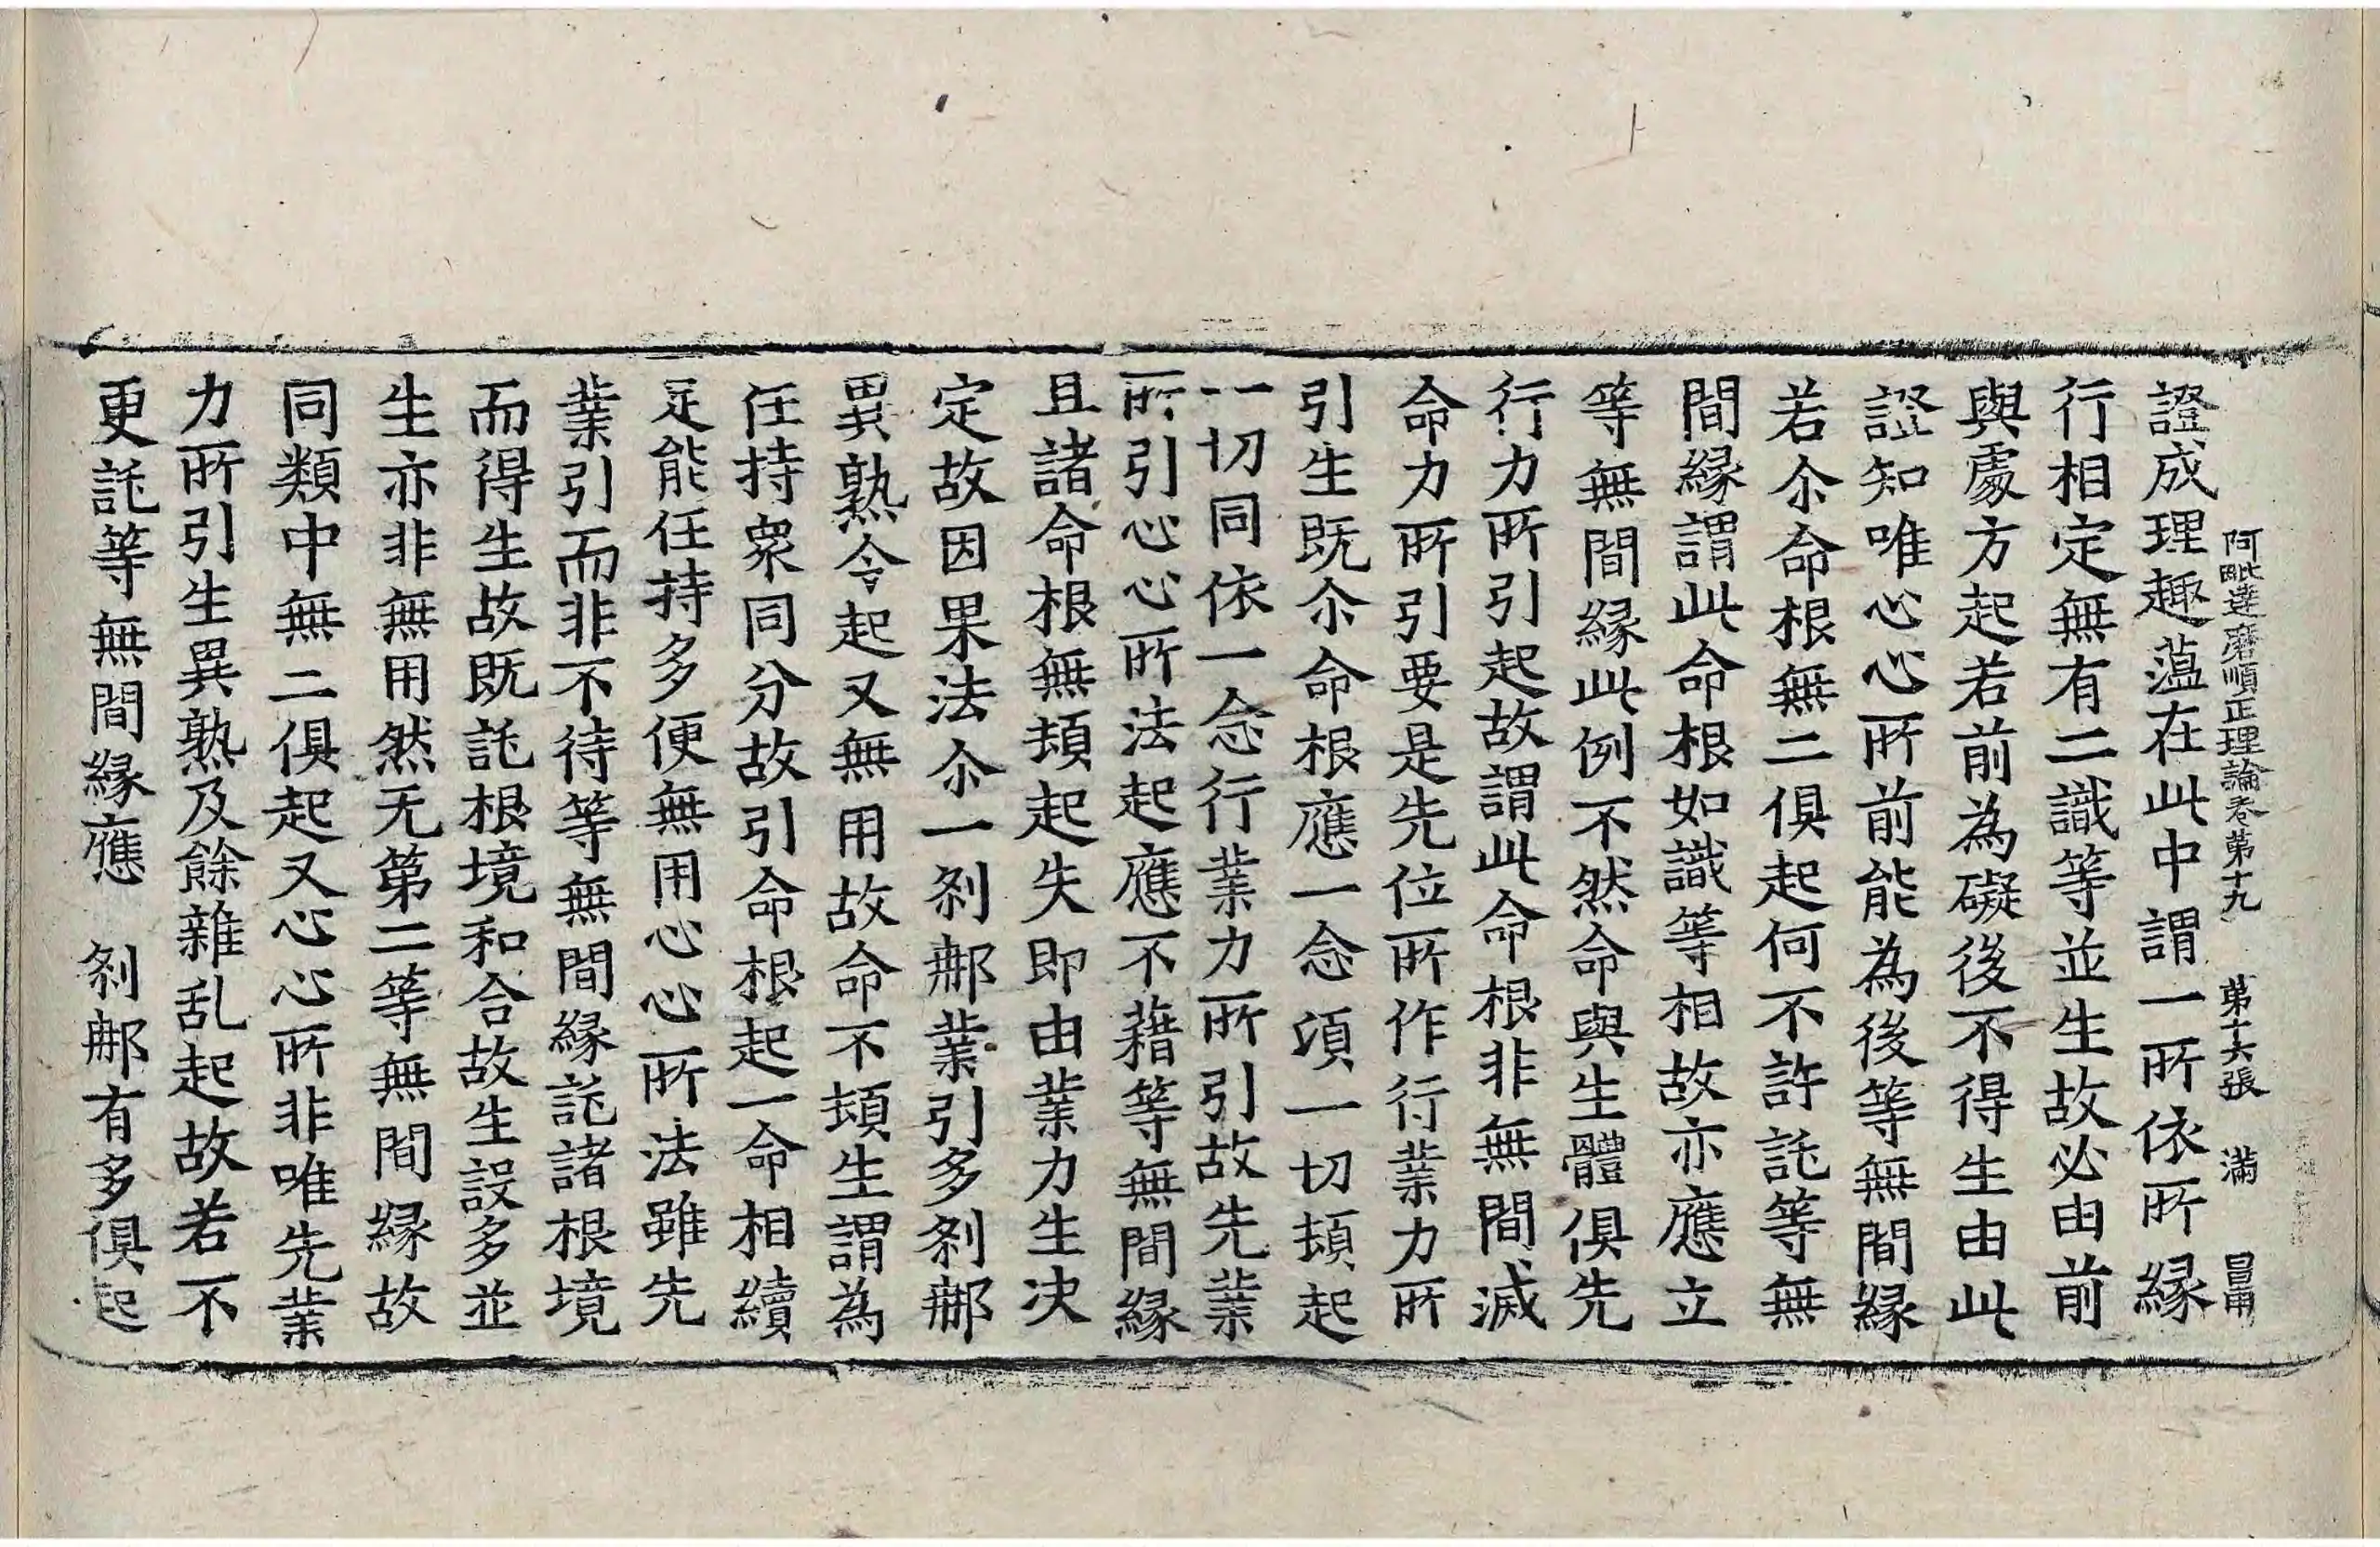 阿毗達磨順正理論卷第十九 第十六張 滿
證成理趣薀在此中謂一所依所縁
行相定無有二識等並生故必由前
與處方起若前為礙後不得生由此
證知唯心心所前能為後等無間縁
若尒命根無二俱起何不許託等無
間縁謂此命根如識等相故亦應立
等無間縁此例不然命與生體俱先
行力所引起故謂此命根非無間滅
命力所引要是先位所作行業力所
引生既尒命根應一念頃一切頓起
一切同依一念行業力所引故先業
所引心心所法起應不藉等無間縁
且諸命根無頓起失即由業力生决
定故因果法尒一刹那業引多刹那
異熟令起又無用故命不頓生謂為
任持衆同分故引命根起一命相續
足能任持多便無用心心所法雖先
業引而非不待等無間縁託諸根境
而得生故既託根境和合故生設多並
生亦非無用然无第二等無間縁故
同類中無二俱起又心心所非唯先業
力所引生異熟及餘雜乱起故若不
更託等無間縁應 刹那有多俱起